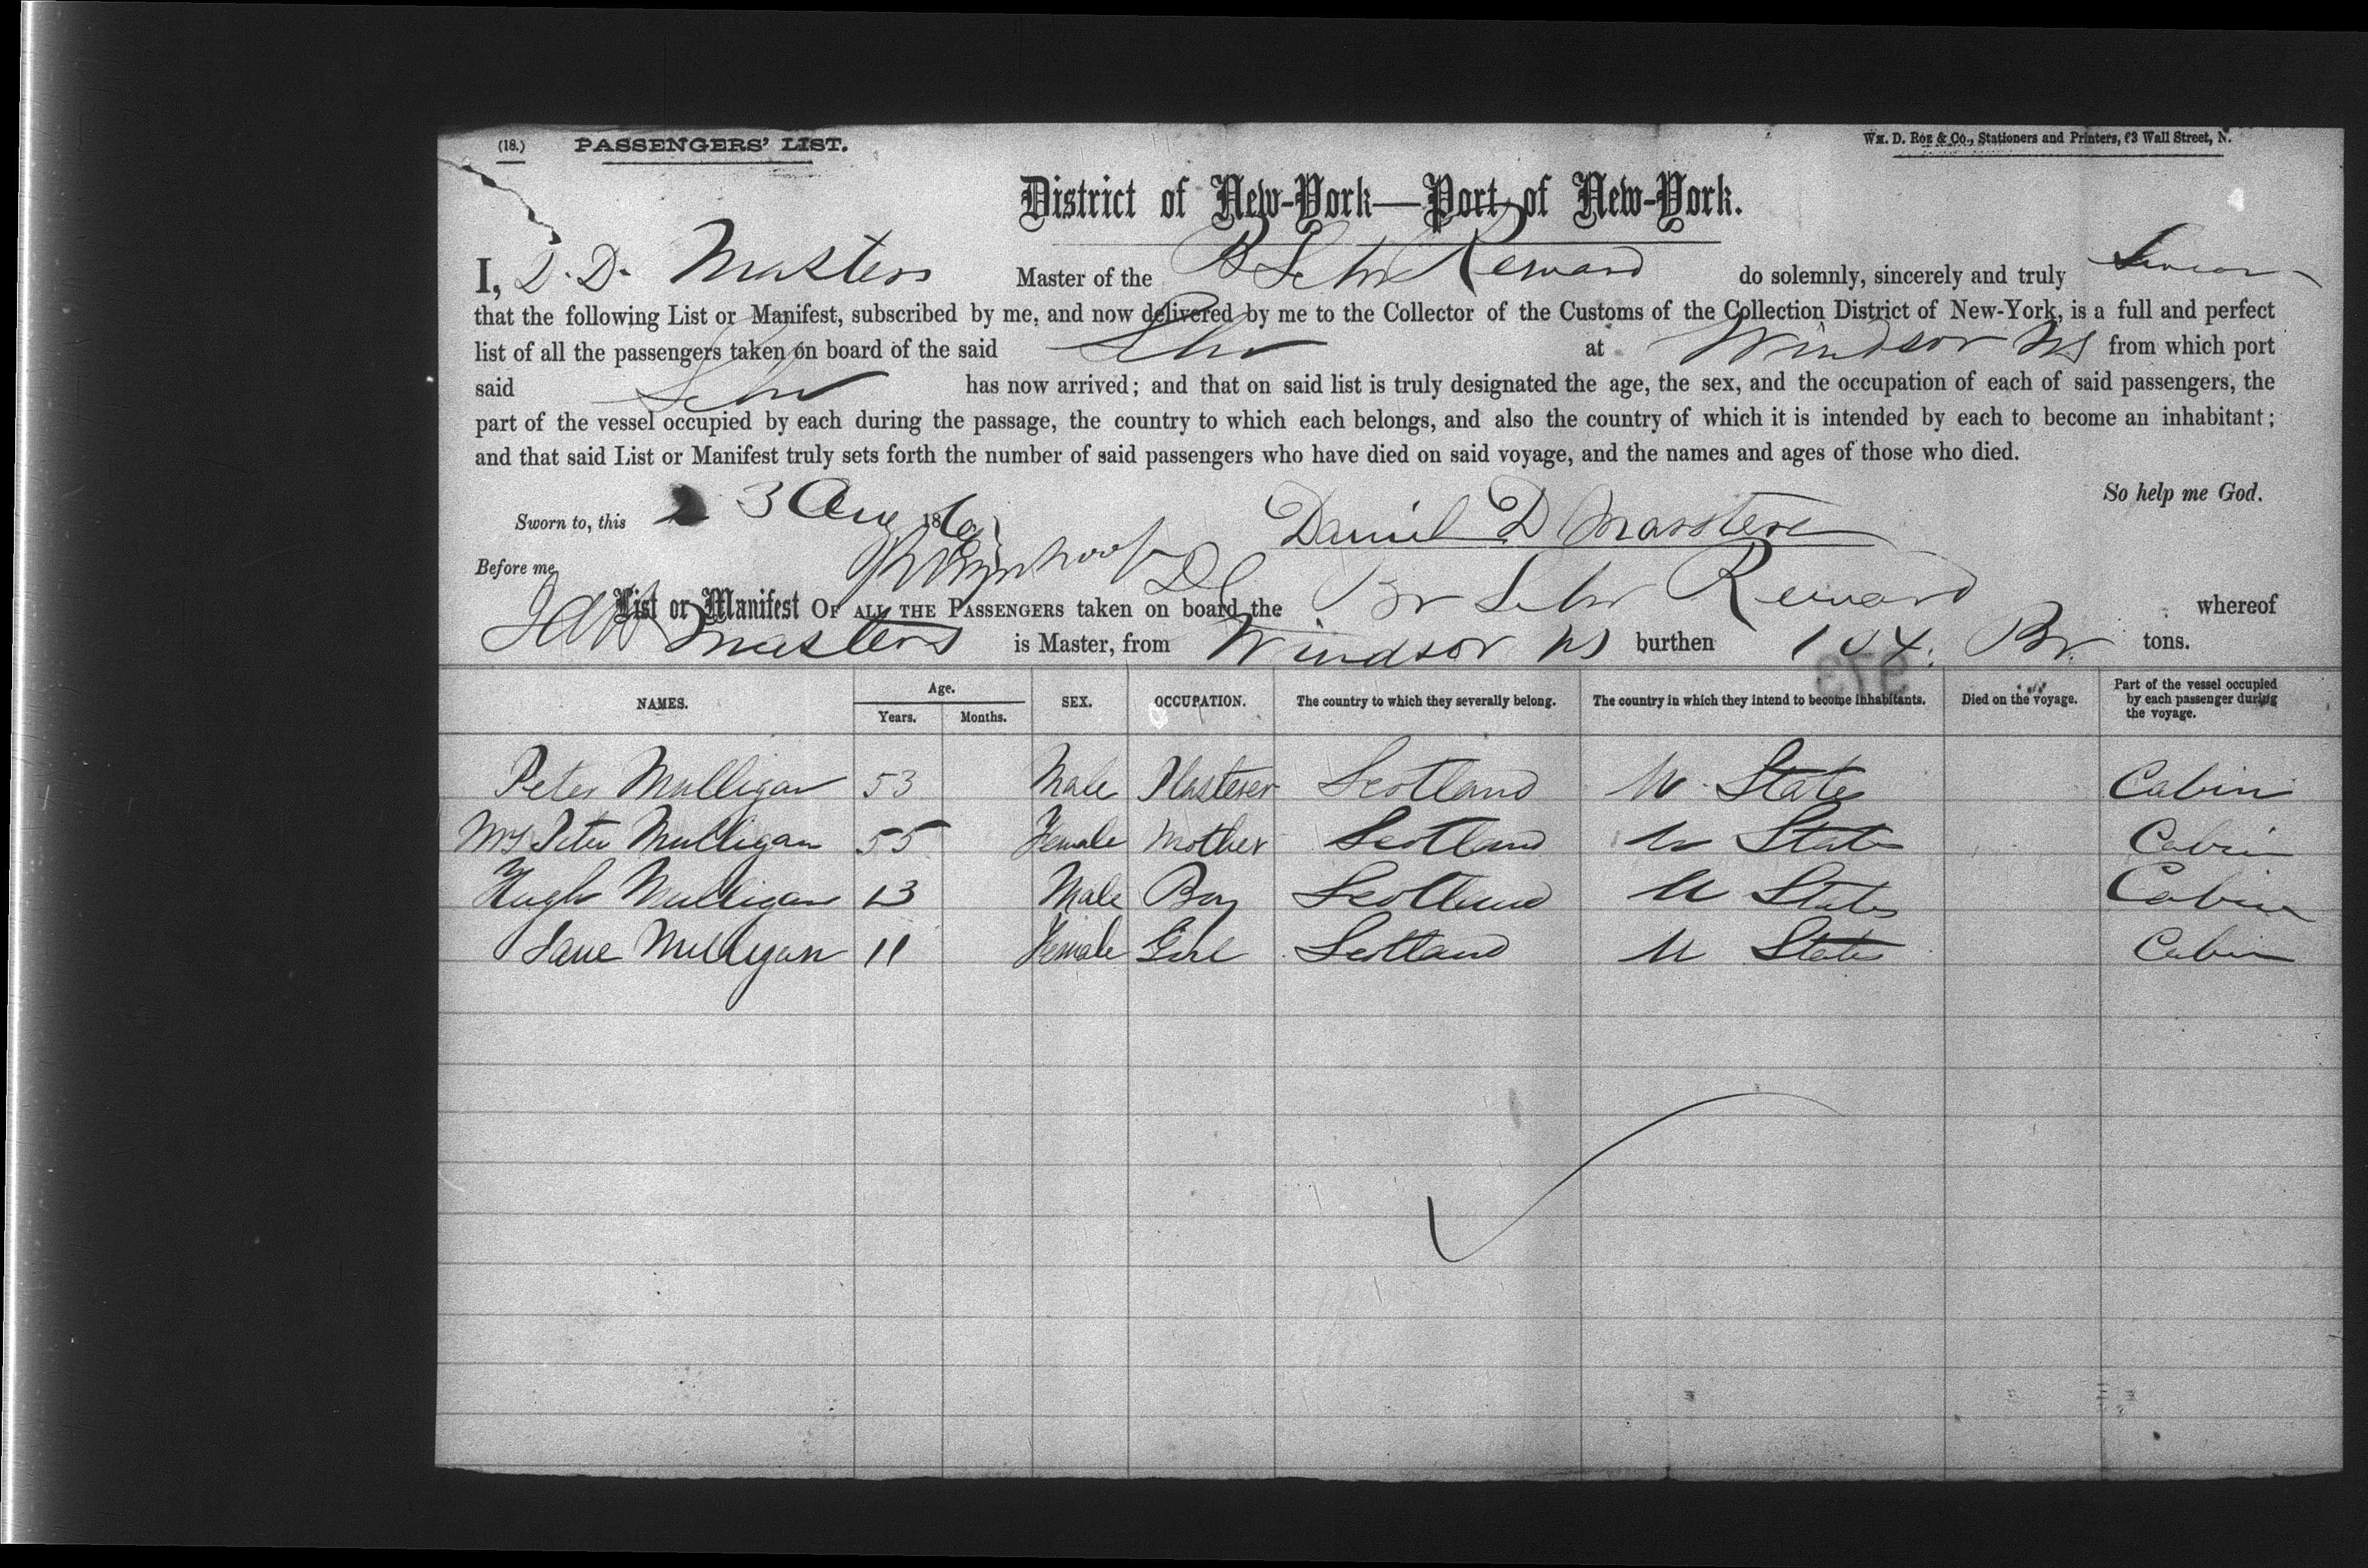 (18.) PASSENGERS' LIST. Wm. D. Roe & Co., Stationers and Printers, 63 Wall Street, N.
District of New-York—Port of New-York.
I, D. D. Masters Master of the B Schr Reward do solemnly, sincerely and truly Swear
that the following List or Manifest, subscribed by me, and now delivered by me to the Collector of the Customs of the Collection District of New-York, is a full and perfect
list of all the passengers taken on board of the said Schr at Windsor NS from which port
said Schr has now arrived; and that on said list is truly designated the age, the sex, and the occupation of each of said passengers, the
part of the vessel occupied by each during the passage, the country to which each belongs, and also the country of which it is intended by each to become an inhabitant;
and that said List or Manifest truly sets forth the number of said passengers who have died on said voyage, and the names and ages of those who died.
So help me God.
Sworn to, this 3 Aug 186 Daniel D Masters
Before me
List or Manifest OF ALL THE PASSENGERS taken on board the Br Schr Reward whereof
Masters is Master, from Windsor NS burthen 104 Br tons.
NAMES. Age. Years. Months. SEX. OCCUPATION. The country to which they severally belong. The country in which they intend to become inhabitants. Died on the voyage. Part of the vessel occupied by each passenger during the voyage.
Peter Mulligan 53 Male Plasterer Scotland U States Cabin
Mrs Peter Mulligan 55 Female Mother Scotland U States Cabin
Hugh Mulligan 13 Male Boy Scotland U States Cabin
Jane Mulligan 11 Female Girl Scotland U States Cabin